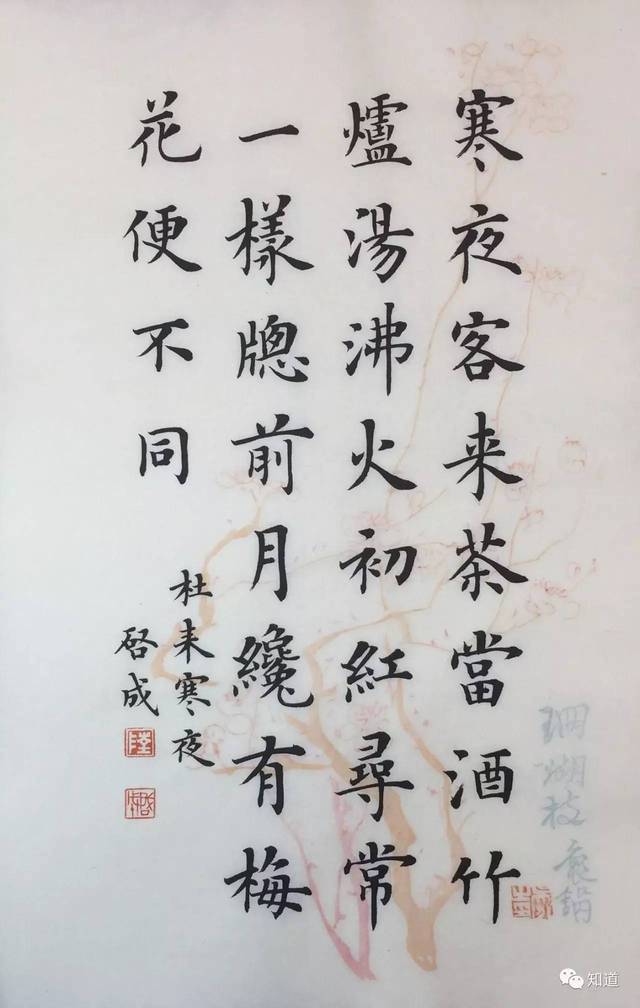 寒夜客来茶當酒竹
爐湯沸火初紅尋常
一樣牕前月纔有梅
花便不同
杜耒寒夜
啓成
珊瑚枝
知道